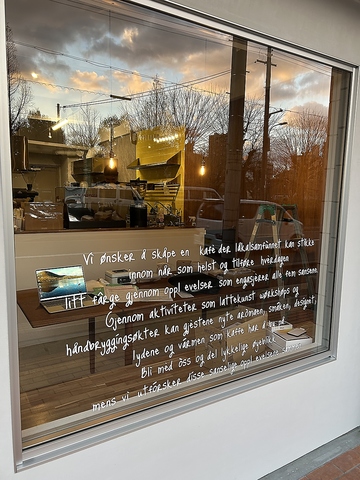 Vi ønsker å skape en kafé der lokalsamfunnet kan stikke
innom når som helst og tilføre hverdagen
litt farge gjennom opplevelser som engasjerer alle fem sansene.
Gjennom aktiviteter som lattekunst workshops og
håndbryggingsøkter kan gjestene nyte aromaen, smaken, designet,
lydene og varmen som kaffe har å
Bli med oss og del lykkelige øyeblikk
mens vi utforsker disse sanselige opplevelsene